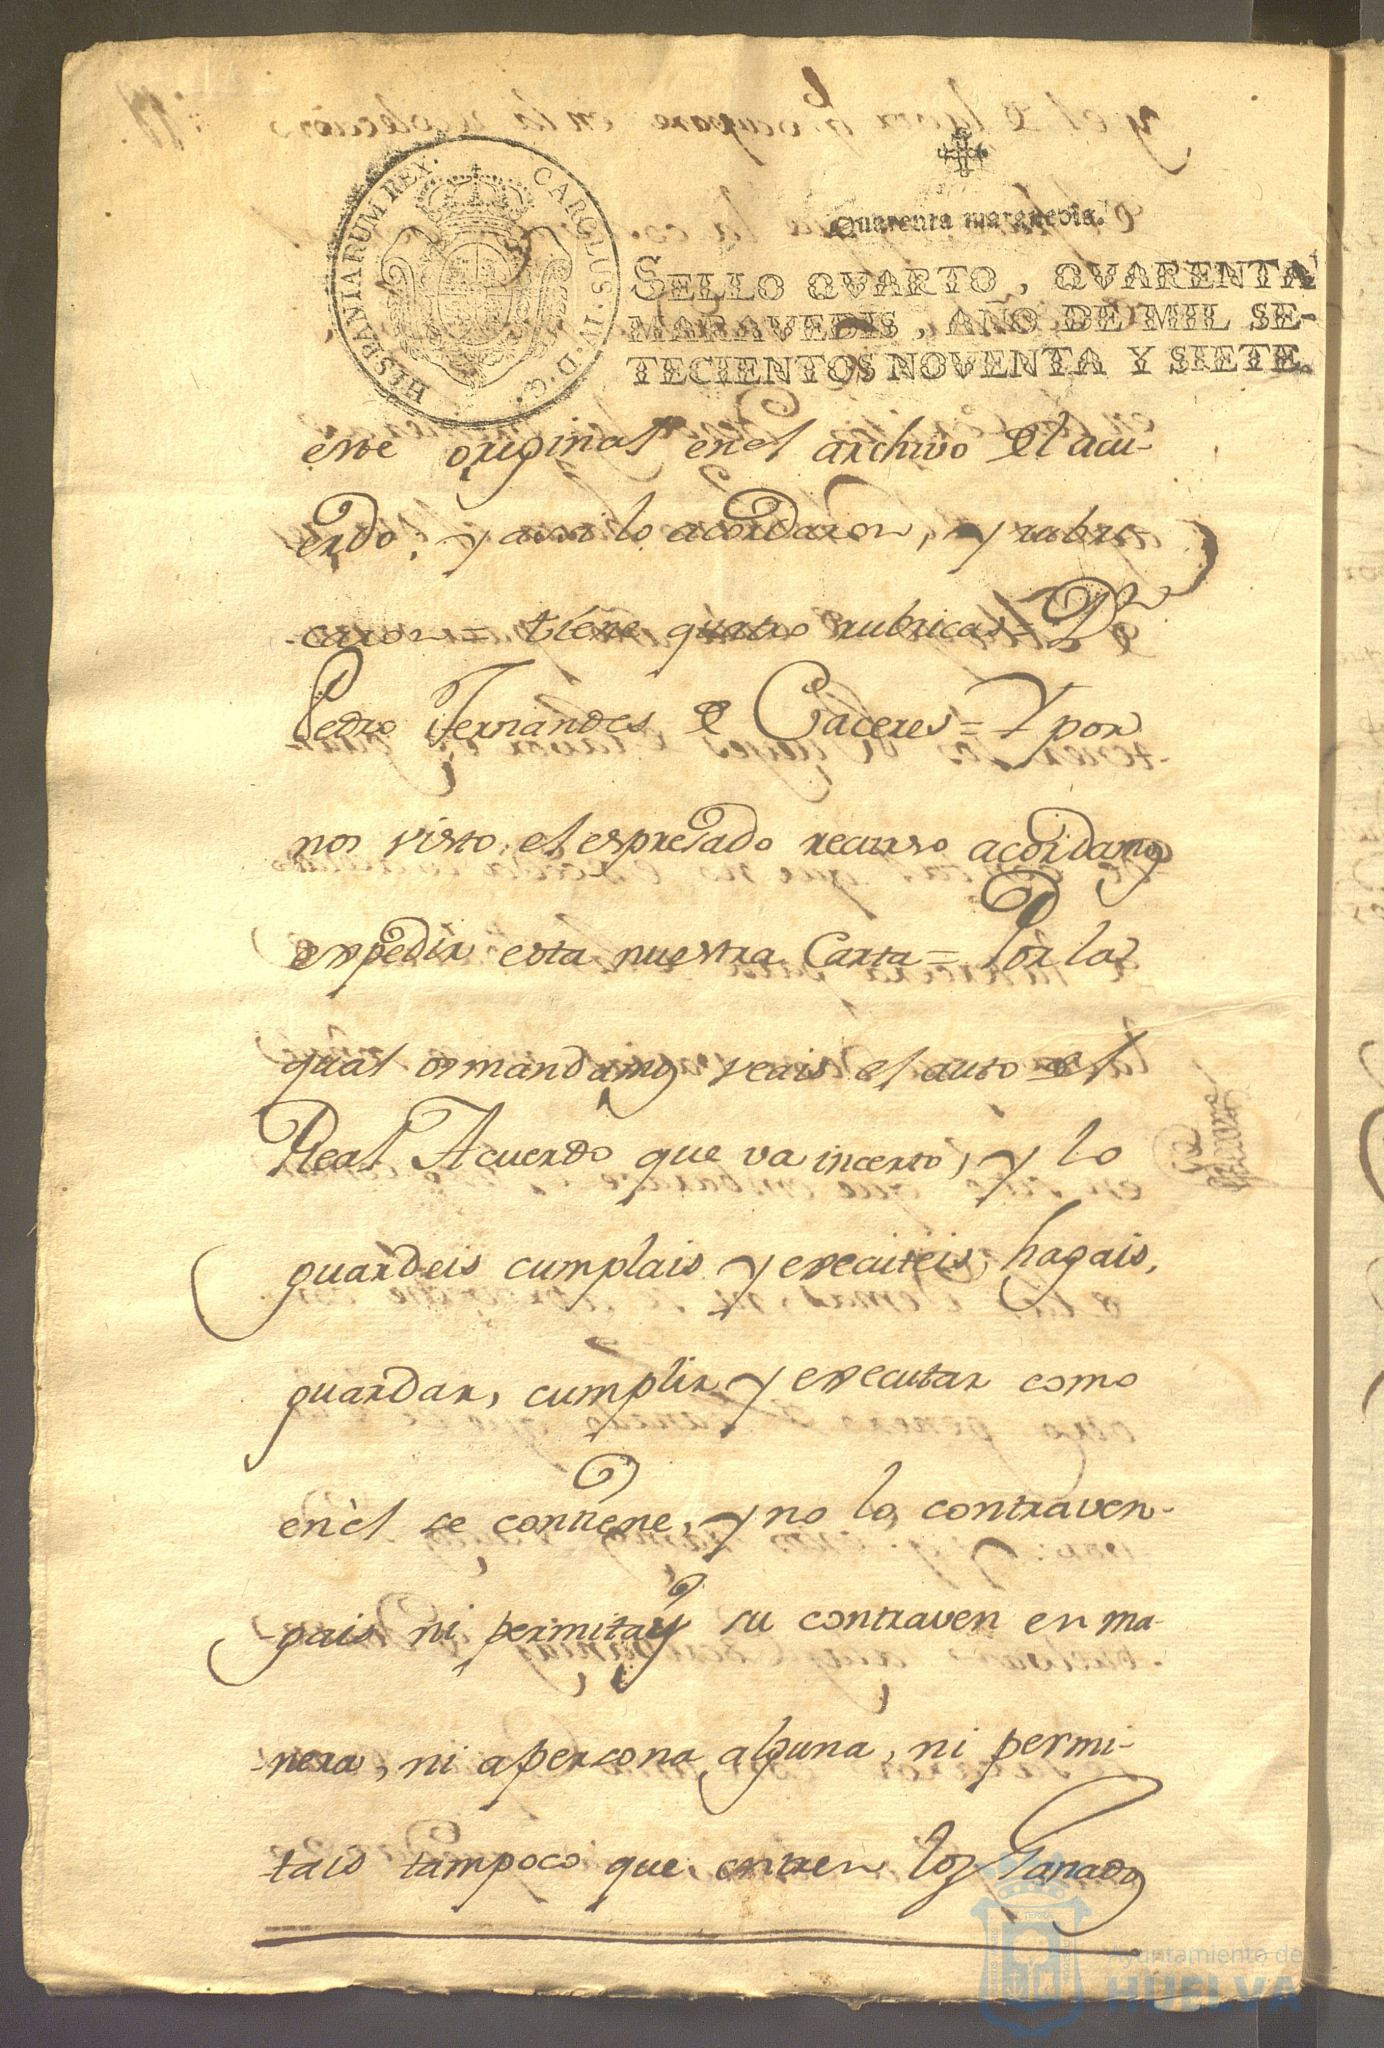 HISPANIARUM REX. CAROLUS. IV. D. G.
Quarenta maravedis.
SELLO QVARTO, QVARENTA
MARAVEDIS, AÑO DE MIL SE-
TECIENTOS NOVENTA Y SIETE.
este original en el archivo del acu-
erdo. y assi lo acordaron, y rubri
caron = tiene quatro rubricas = Dn
Pedro Fernandes de Caceres = Y por
nos visto el espresado recurso acordamos
expedir esta nuestra Carta = Por la
qual os mandamos veais el auto del
Real Acuerdo que va incerto, y lo
guardeis cumplais y executeis, hagais,
guardar, cumplir y executar como
en èl se contiene, y no lo contraven-
gais ni permitais su contraven en ma-
nera, ni apersona alguna, ni permi-
tais tampoco que entren los Ganados
Ayuntamiento de
HUELVA